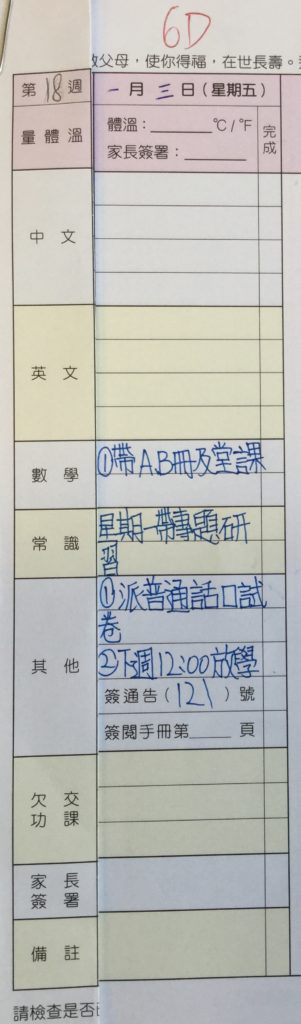 6D
敬父母，使你得福，在世長壽。
第18週 一月三日(星期五)
量體溫 體溫：______ °C/°F
家長簽署：______
完成
中文
英文
數學 ①帶A.B冊及堂課
常識 星期一帶專題研
習
其他 ①派普通話口試
卷
②下週12:00放學
簽通告(121)號
簽閱手冊第____頁
欠交
功課
家長
簽署
備註
請檢查是否